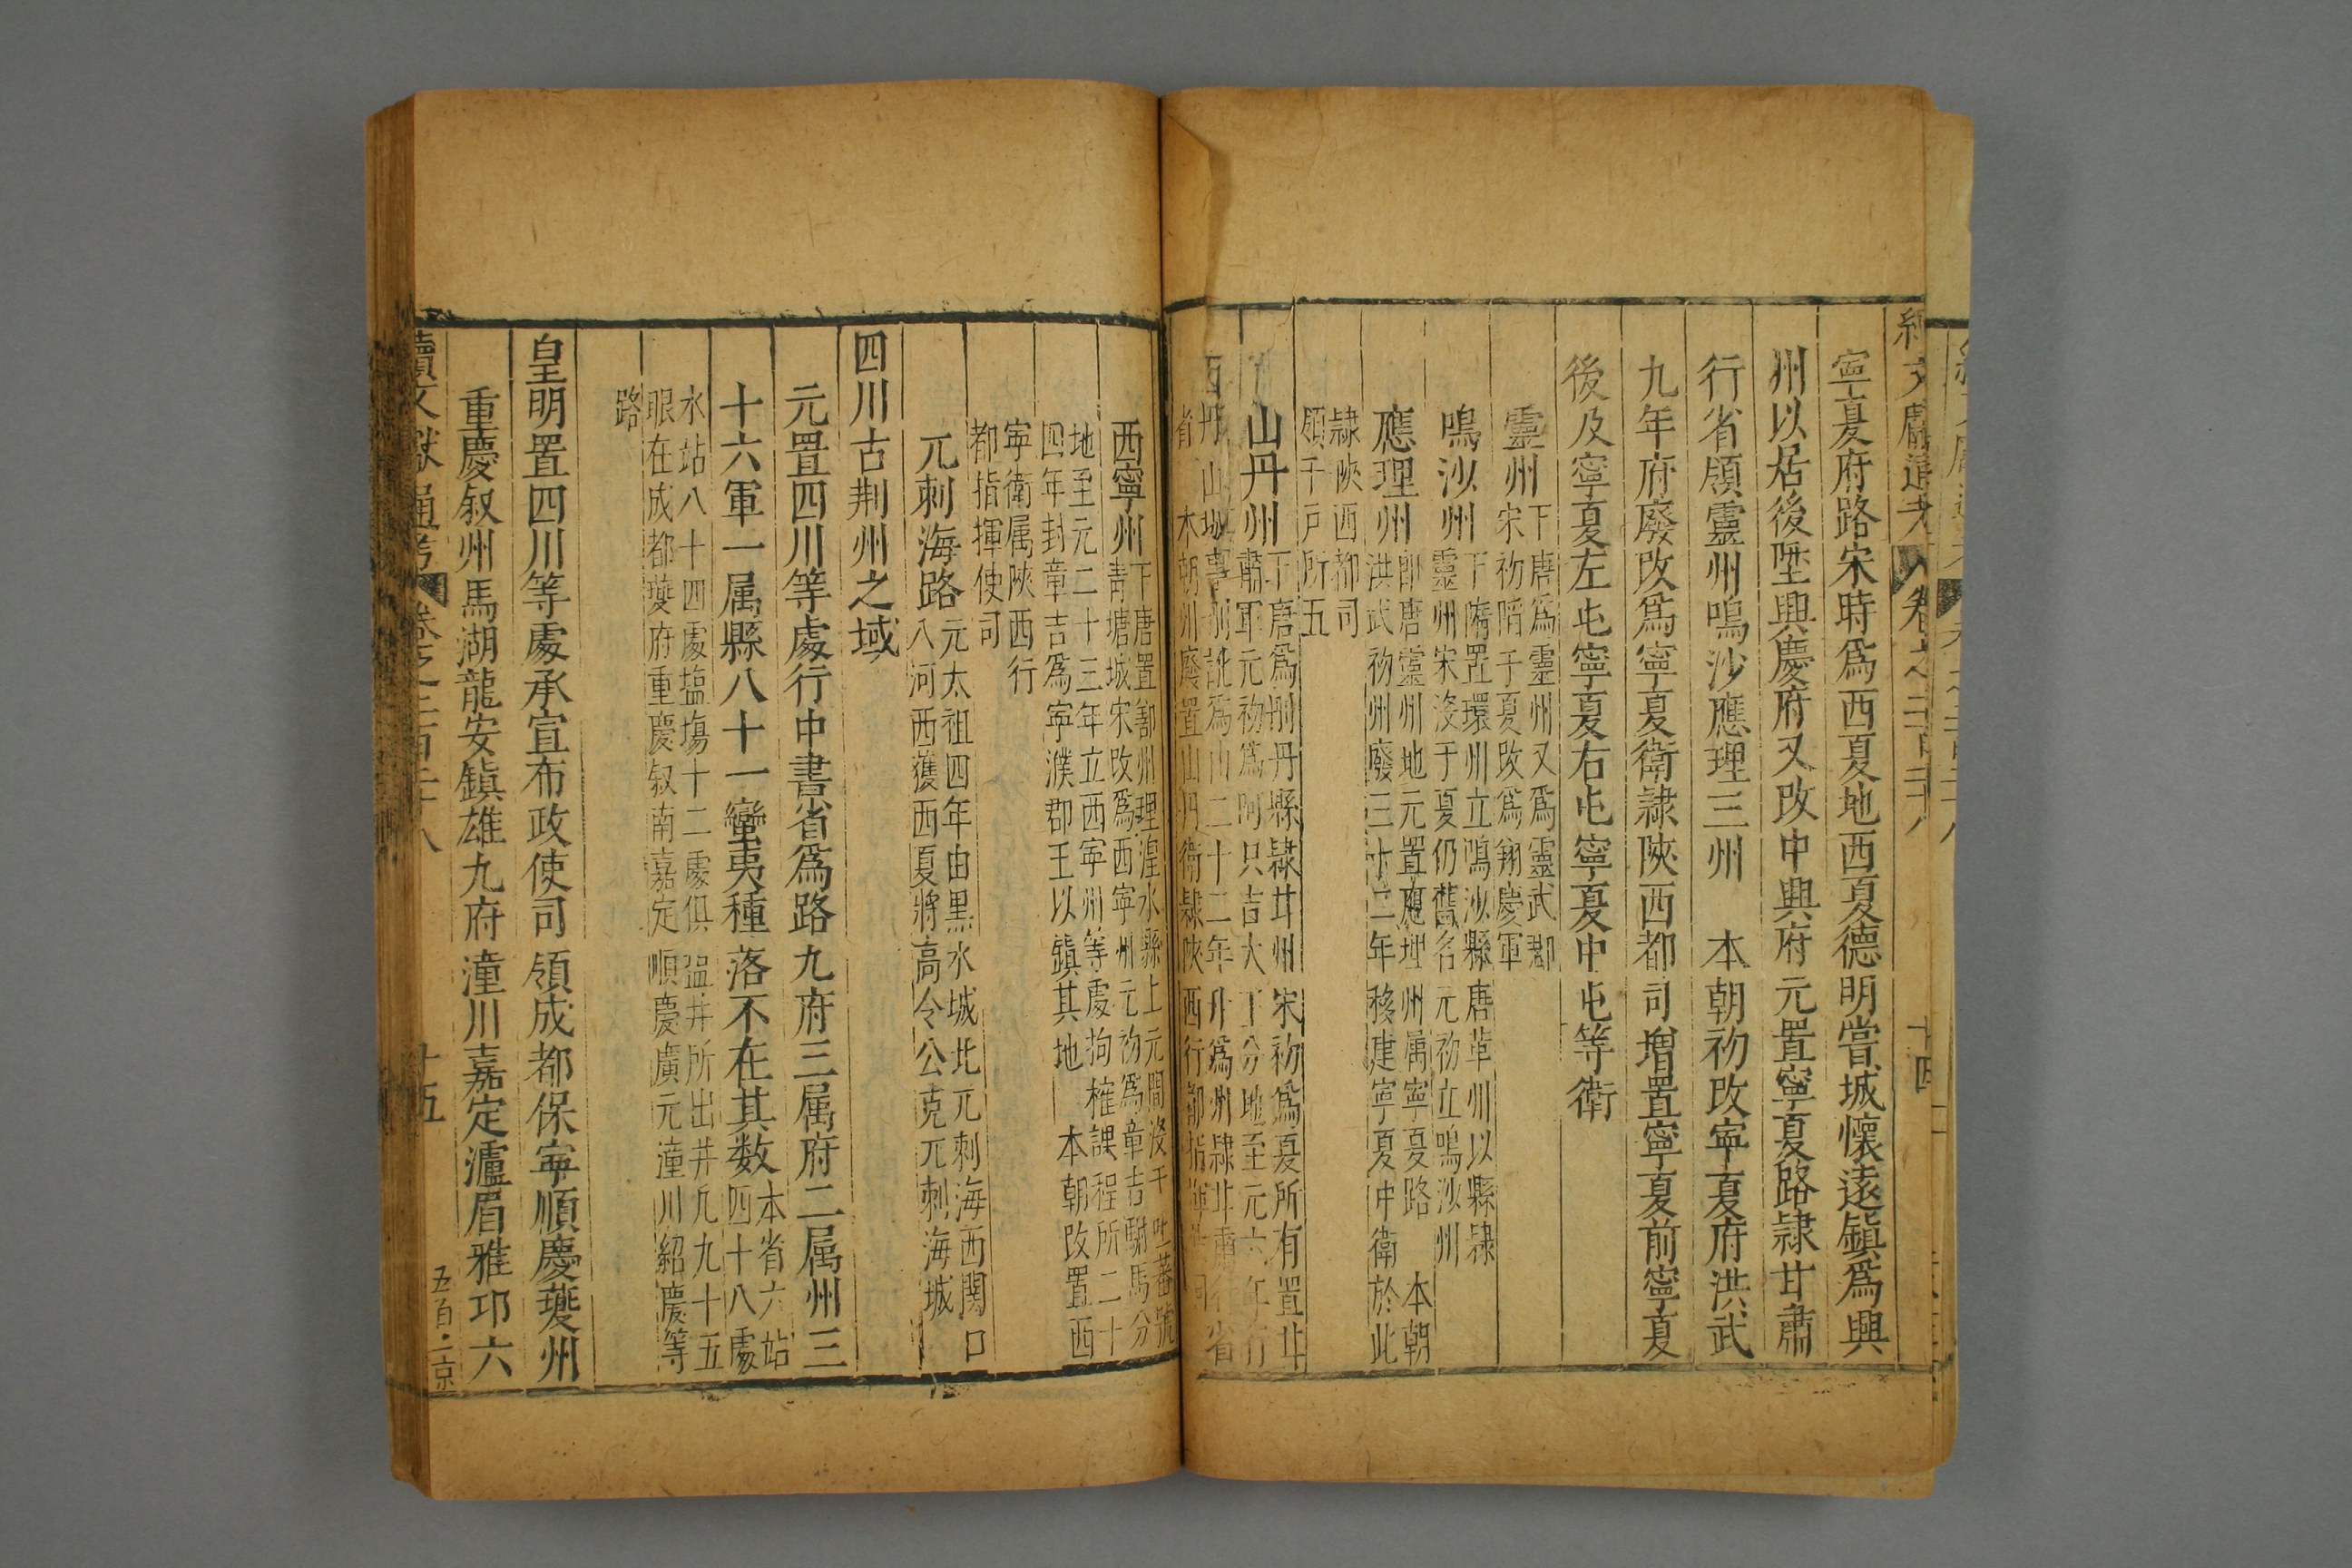 寧夏府路宋時爲西夏地西夏德明嘗城懷遠鎭爲興
州以居後陞興慶府又改中興府元置寧夏路隷甘肅
行省領靈州鳴沙應理三州 本朝初改寧夏府洪武
九年府廢改爲寧夏衛隷陜西都司增置寧夏前寧夏
後及寧夏左屯寧夏右屯寧夏中屯等衛
靈州下唐爲靈州又爲靈武郡
宋初陷于夏改爲翔慶軍
鳴沙州下隋置環州立鳴沙縣唐革州以縣隷
靈州宋没于夏仍舊名元初立鳴沙州
應理州卽唐靈州地元置應理州属寧夏路 本朝
洪武初州廢三十二年移建寧夏中衛於此
隷陜西都司
領千戸所五
山丹州下唐爲刪丹縣隷甘州宋初爲夏所有置甘
肅軍元初爲阿只吉大王分地至元六年行
丹山城事刪訛爲山二十二年升爲州隷甘肅行省
本朝州廢置山丹衛隷陜西行都指
西寧州下唐置鄯州理湟水縣上元間没于吐蕃號
青塘城宋改爲西寧州元初爲章吉駙馬分
地至元二十三年立西寧州等處拘榷課程所二十
四年封章吉爲寧濮郡王以鎭其地 本朝改置西
寧衛属陜西行
都指揮使司
兀刺海路元太祖四年由黑水城北兀刺海西関口
入河西獲西夏將高令公克兀刺海城
四川古荆州之域
元置四川等處行中書省爲路九府三属府二属州三
十六軍一属縣八十一蠻夷種落不在其数本省六站
四十八處
水站八十四處塩塲十二處俱塩井所出井凡九十五
眼在成都夔府重慶叙南嘉定順慶廣元潼川紹慶等
路
皇明置四川等處承宣布政使司領成都保寧順慶夔州
重慶叙州馬湖龍安鎭雄九府潼川嘉定瀘眉雅邛六
續文獻通考 卷之二百二十八 十五
五百二京